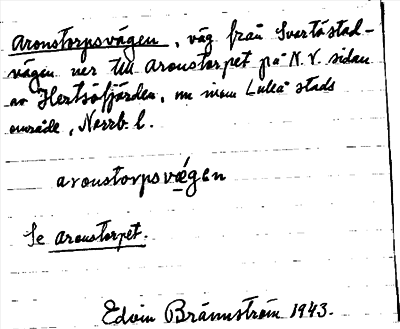 Aronstorpsvägen, väg från Svartöstad-
vägen ner till Aronstorpet på N.V. sidan
av Hertsöfjärden, nu inom Luleå stads
område, Norrb. l.
aronstorpsvægen
Se Aronstorpet.
Edvin Brännström 1943.